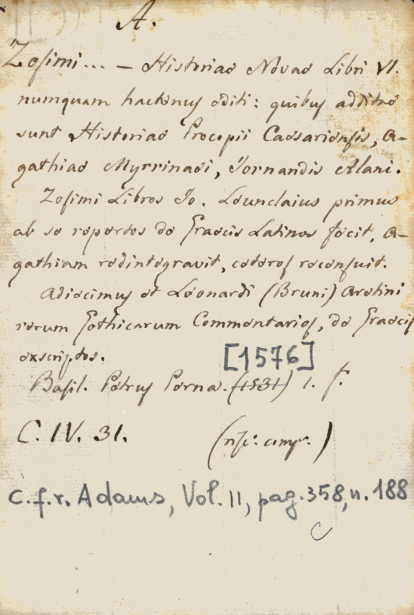 A.
Zosimi... — Historiae Novae Libri VI.
numquam hactenus editi: quibus additae
sunt Historiae Procopii Caesariensis, A-
gathiae Myrrinaei, Jornandis Alani.
Zosimi Libros Io. Leunclaius primus
ab se repertos de Graecis Latinos fecit, A-
gathiam redintegravit, ceteros recensuit.
Adiecimus et Leonardi (Bruni) Aretini
rerum Gothicarum Commentarios, de Graecis
exscriptos.
[1576]
Basil. Petrus Perna. (1531) 1. f.
C. IV. 31.
c.f.r. Adams, Vol. II, pag. 358, n. 188